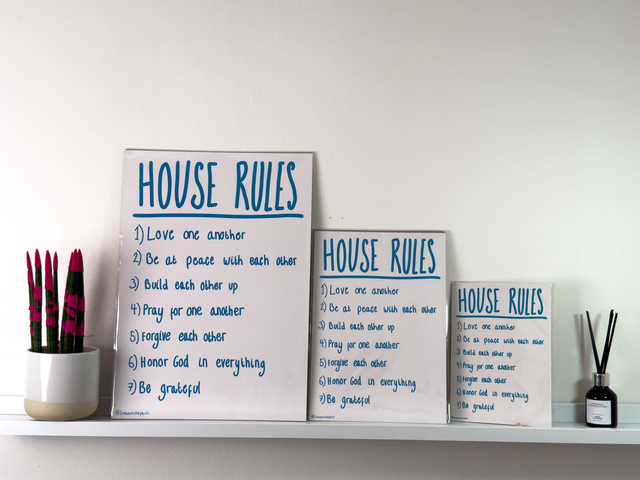 HOUSE RULES
1) Love one another
2) Be at peace with each other
3) Build each other up
4) Pray for one another
5) Forgive each other
6) Honor God in everything
7) Be grateful
HOUSE RULES
1) Love one another
2) Be at peace with each other
3) Build each other up
4) Pray for one another
5) Forgive each other
6) Honor God in everything
7) Be grateful
HOUSE RULES
1) Love one another
2) Be at peace with each other
3) Build each other up
4) Pray for one another
5) Forgive each other
6) Honor God in everything
7) Be grateful